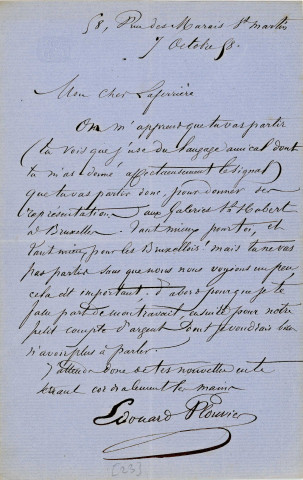 58, Rue des Marais St Martin
7 Octobre 58.
Mon Cher Laferrière
On m'apprend que tu vas partir
(tu vois que j'use du langage amical dont
tu m'as donné affectueusement le signal)
que tu vas partir donc, pour donner des
représentations aux Galeries St Hubert
à Bruxelles. Tant mieux pour toi, et
tant mieux pour les Bruxellois! mais tu ne vas
pas partir sans que nous nous voyions un peu
cela est important. D'abord pour que je te
fasse part de mon travail, ensuite pour notre
petit compte d'argent dont je voudrais bien
n'avoir plus à parler.
J'attends donc de tes nouvelles en te
serrant cordialement la main
Edouard Plouvier
[23]